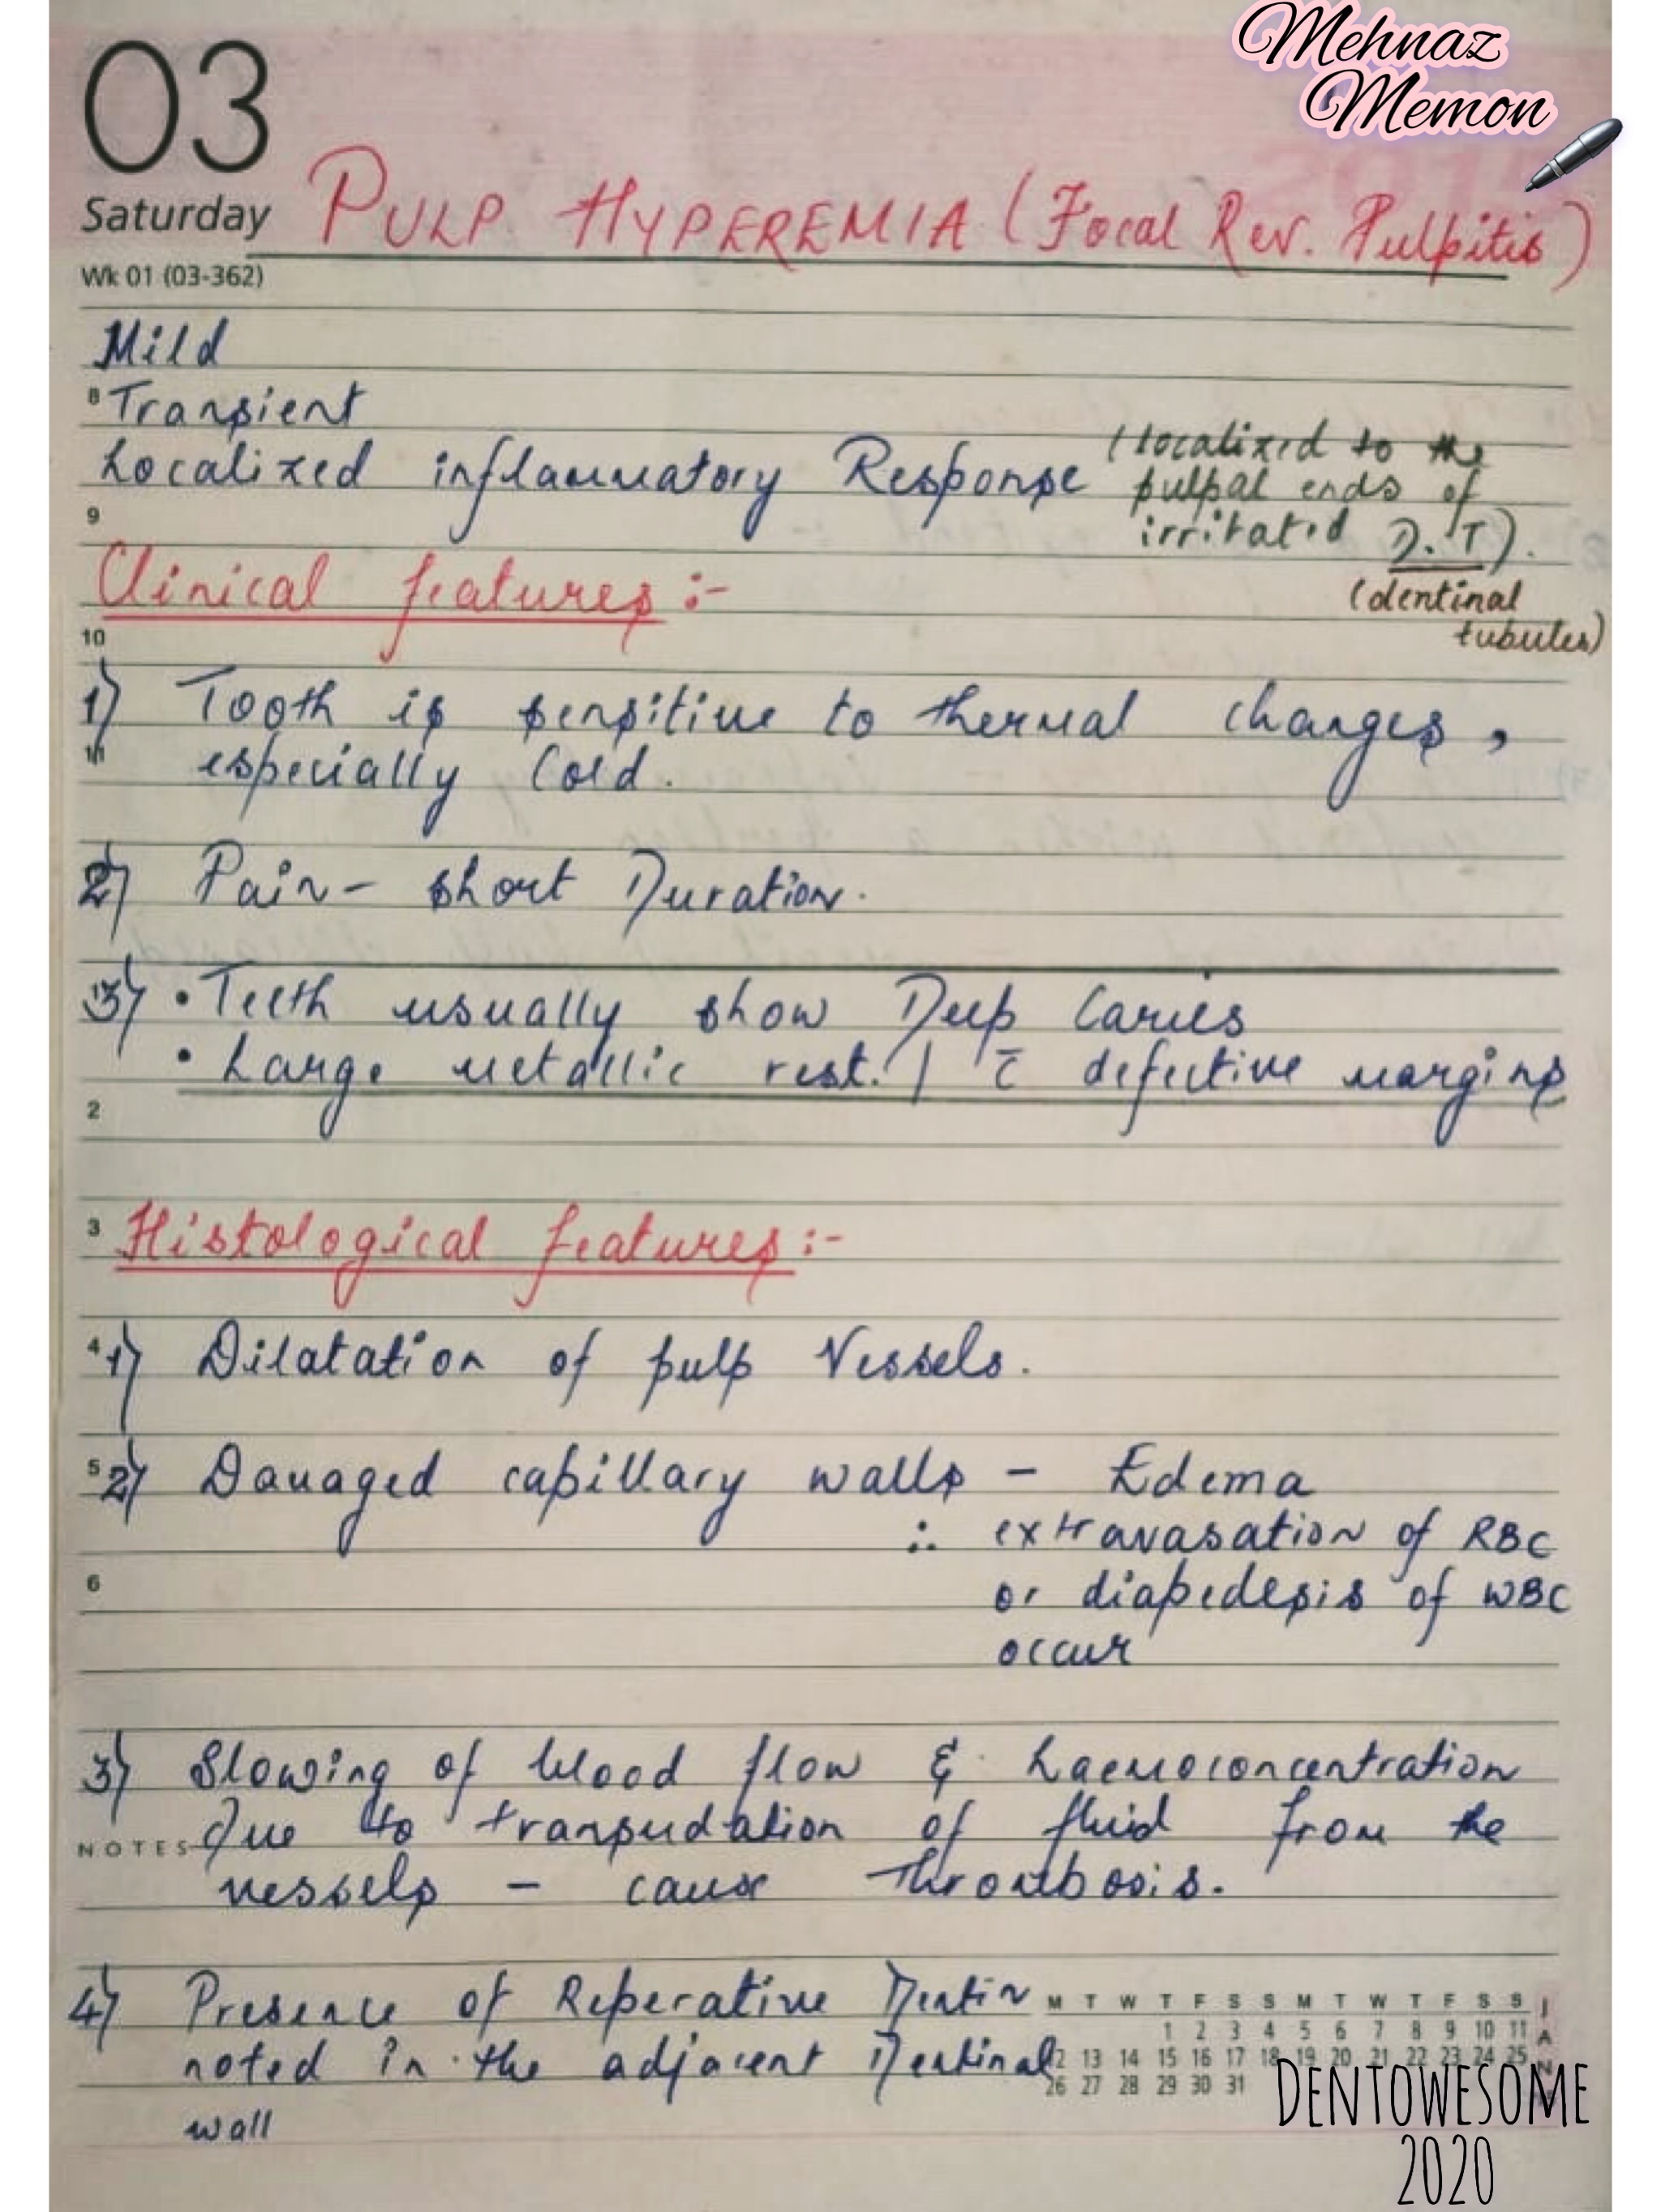 Mehnaz
Memon
03
Saturday
PULP HYPEREMIA (Focal Rev. Pulpitis)
Wk 01 (03-362)
Mild
8 Transient
Localized inflammatory Response (localized to the
pulpal ends of
irritated D.T).
(dentinal
tubules)
9
Clinical features :-
10
1) Tooth is sensitive to thermal changes,
11 especially Cold.
2) Pain - short Duration.
3) • Teeth usually show Deep Caries
• Large metallic rest. | c̄ defective margins
2
3 Histological features :-
4 1) Dilatation of pulp Vessels.
5 2) Damaged capillary walls - Edema
∴ extravasation of RBC
6 or diapedesis of WBC
occur
3) Slowing of blood flow & haemoconcentration
NOTES Due to transudation of fluid from the
vessels - cause Thrombosis.
4) Presence of Reperative Dentin
noted in the adjacent Dentinal
wall
M T W T F S S M T W T F S S
1 2 3 4 5 6 7 8 9 10 11
12 13 14 15 16 17 18 19 20 21 22 23 24 25
26 27 28 29 30 31
JAN
DENTOWESOME
2020